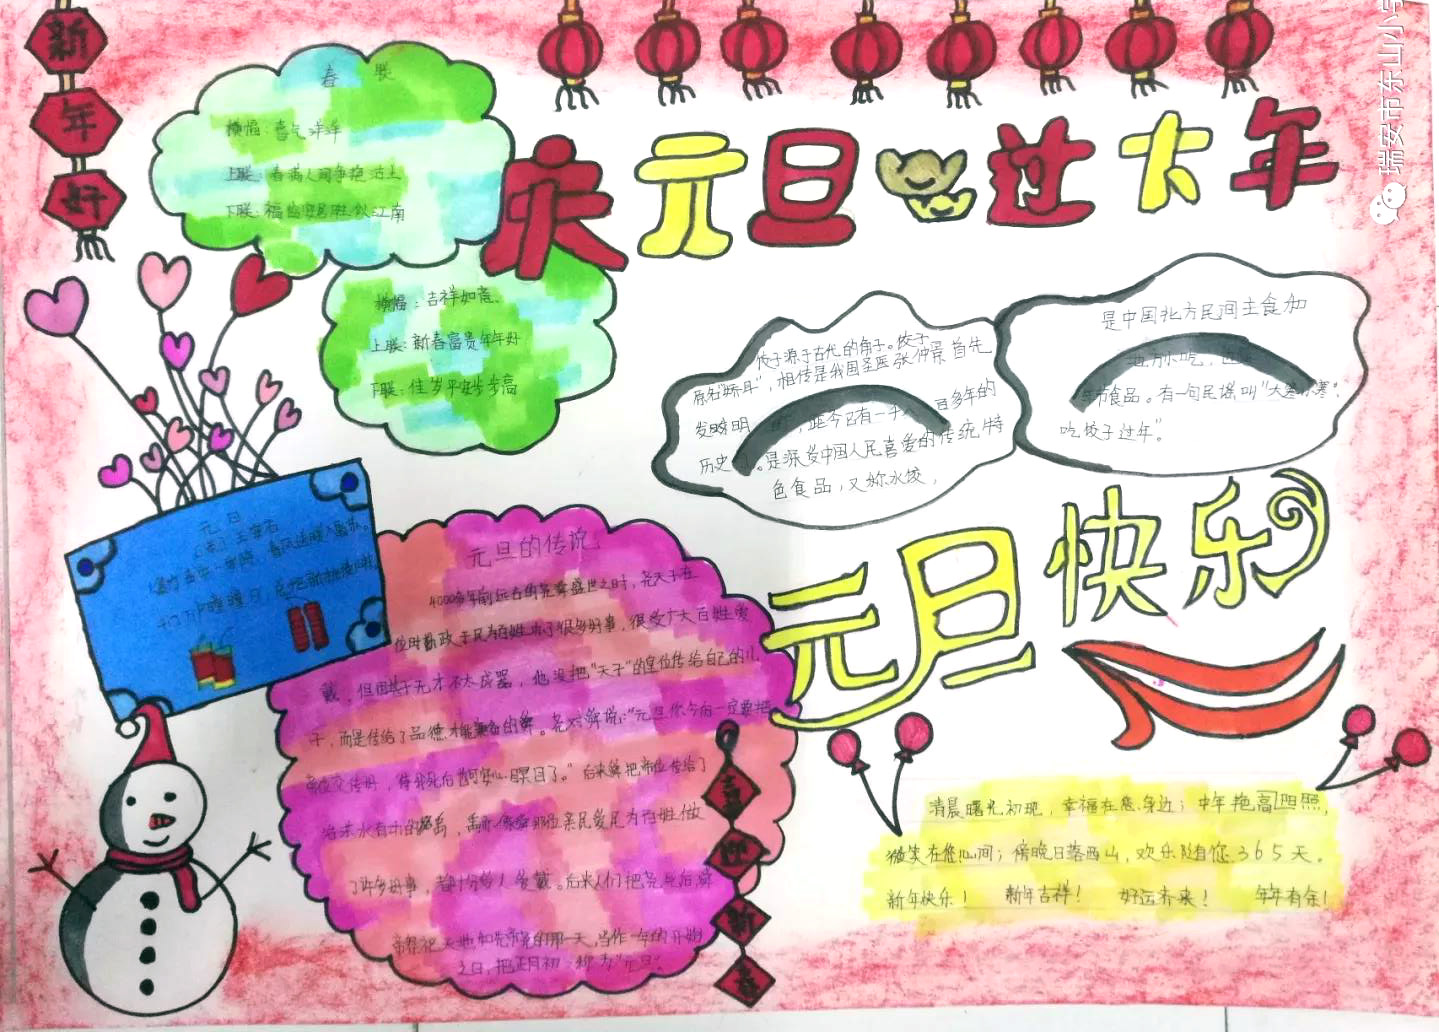 新年好
庆元旦过大年
瑞安市东山小学
春联
横幅：喜气洋洋
上联：春满人间
下联：福
似江南
横幅：吉祥如意
上联：新春富贵年年好
下联：佳岁平安步步高
饺子源于古代的角子。饺子
原名"娇耳"，相传是我国圣医张仲景首先
发明
，距今已有一千八百多年的
历史
。是深受中国人民喜爱的传统特
色食品，又称水饺，
是中国北方民间主食和
地方小吃，也是
年节食品。有一句民谣叫"大寒小寒，
吃饺子过年"。
元旦快乐
元日
王安石
爆竹声中一岁除，春风送暖入屠苏。
千门万户曈曈日，总把新桃换旧符
元旦的传说
4000多年前远古的尧舜盛世之时，尧天子在
位时勤政于民为百姓办了很多好事，很受广大百姓爱
戴，但因其子无才不太成器，他没把"天子"的皇位传给自己的儿
子，而是传给了品德才能兼备的舜。尧对舜说："你今后一定要把
帝位交传好，待我死后也可安心瞑目了。"后来舜把帝位传给了
治洪水有功的
，禹亦像舜那样亲民爱民为百姓做
了许多好事，都十分
人爱戴。后来人们把尧死后，舜
帝祭祀天地和先帝尧的那一天，当作一年的开始
之日，把正月初一称为"元旦"
喜迎新春
清晨曙光初现，幸福在您身边；中午艳高四照，
微笑在您心间；傍晚日落西山，欢乐随您365天。
新年快乐！ 新年吉祥！ 好运未来！ 年年有余！